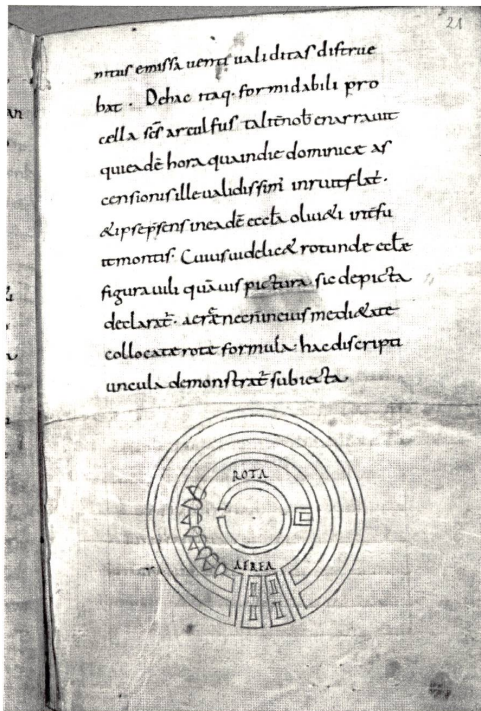 21
nitus emissa uenti ualiditas distrue
bat. Dehac itaq. formidabili pro
cella scs arculfus talit nob enarrauit
quieadē hora quaindie dominicæ as
censionis ille ualidissim' inruit flat'.
&ipsepsens ineadē eccla oliu&i intfu
it montis. Cuius uidelic& rotunde eccle
figura uili quāuis pictura sic depicta
declarat'. aeræ necn ineius medi&ate
collocatæ rotæ formula hac discripti
uncula demonstrat' subiecta
ROTA
AEREA